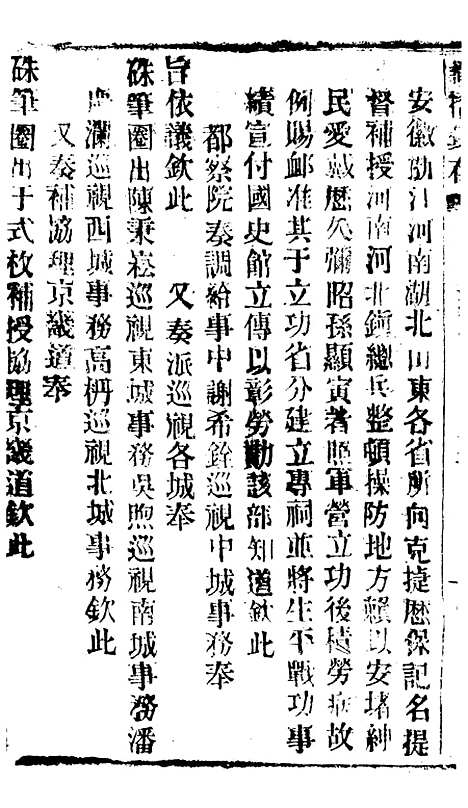 安徽浙江河南湖北山東各省所向克捷歷保記名提
督補授河南河北鎮總兵整頓操防地方賴以安堵紳
民愛戴歷久彌昭孫顯寅著照軍營立功後積勞病故
例賜卹准其于立功省分建立專祠並將生平戰功事
績宣付國史館立傳以彰勞勩該部知道欽此
都察院奏調給事中謝希銓巡視中城事務奉
旨依議欽此　　又奏派巡視各城奉
硃筆圈出陳秉崧巡視東城事務吳煦巡視南城事務潘
慶瀾巡視西城事務高枬巡視北城事務欽此
又奏補協理京畿道奉
硃筆圈出于式枚補授協理京畿道欽此